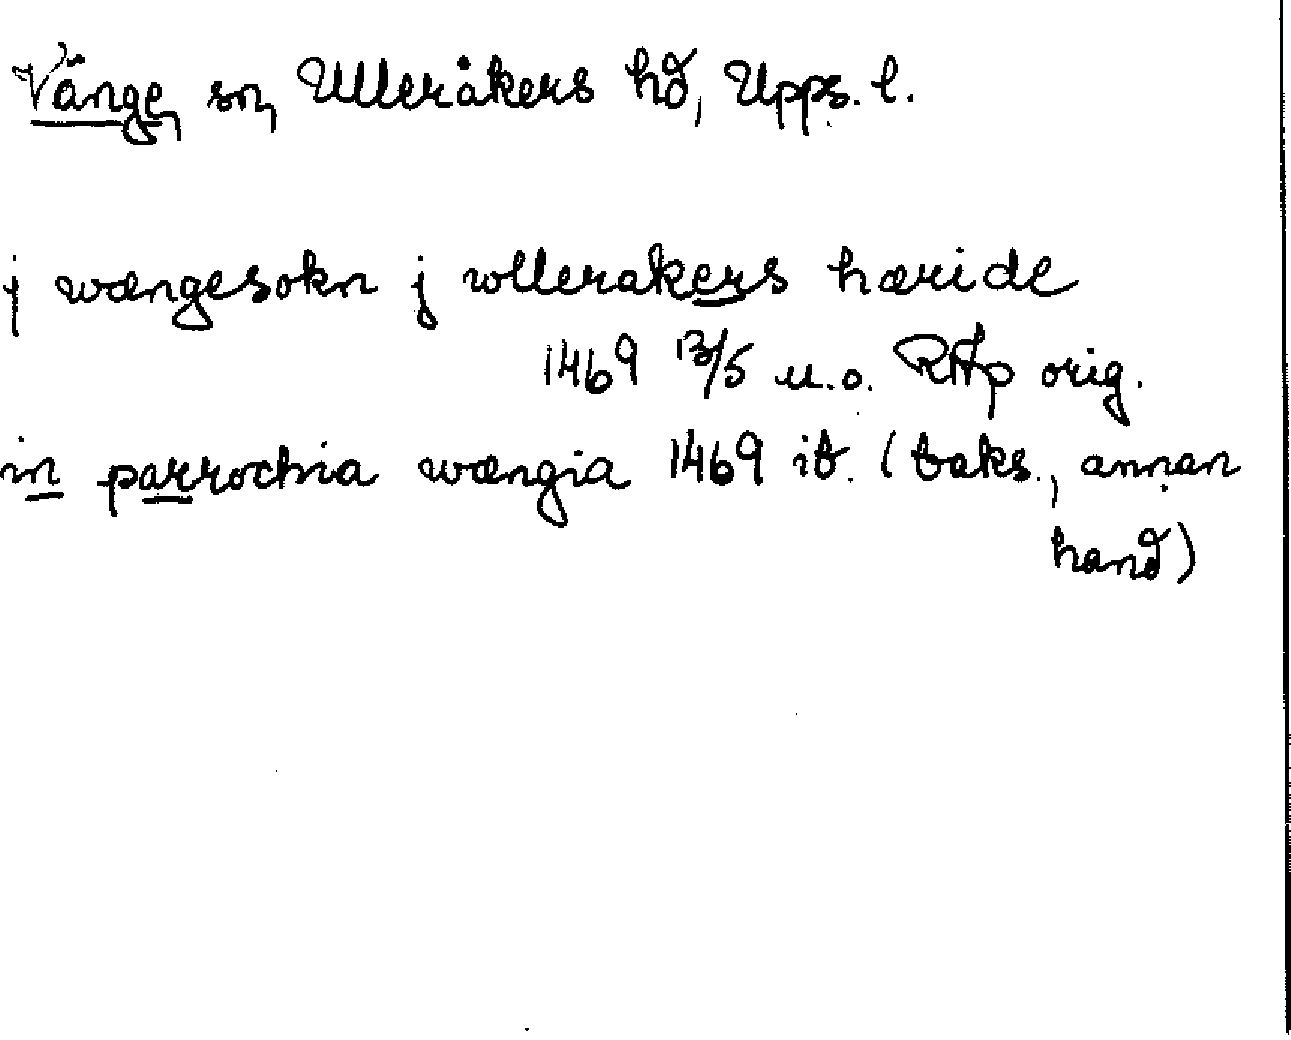 Vänge, sn, Ulleråkers hd, Upps. l.
j wængesokn j wllerakers hæride
1469 13/5 u.o. RAp orig.
in parrochia wængia 1469 ib. (baks., annan
hand)